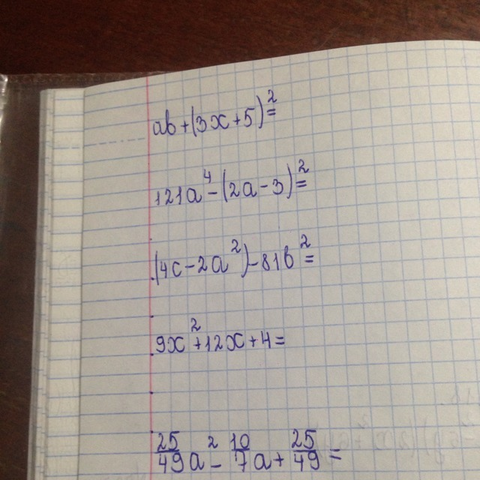 ab+(3x+5)²=
121a⁴-(2a-3)²=
(4c-2a²)-81b²=
9x²+12x+4=
25/49a²-10/7a+25/49=